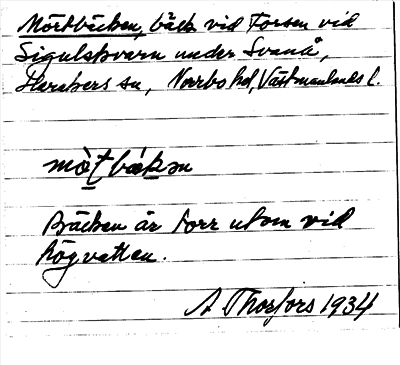 Mörtbäcken, bäck vid Forsen vid
Sigulskvarn under Svanå,
Harakers sn, Norrbo hd, Västmanlands l.
mòt bækən
Bäcken är torr utom vid
högvatten.
A Thorfors 1934